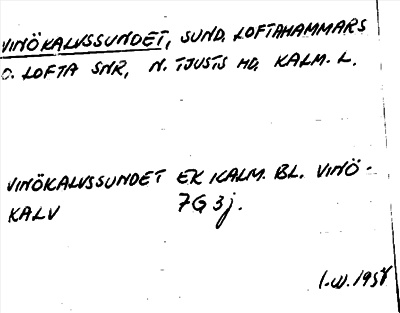 VINÖKALVSSUNDET, SUND, LOFTAHAMMARS
O. LOFTA SNR, N. TJUSTS HD, KALM. L.
VINÖKALVSSUNDET EK KALM. BL. VINÖ-
KALV 7G 3j.
I.W. 1958